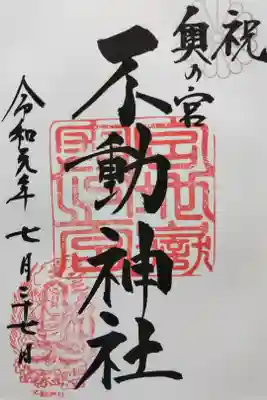 祝
奥の宮
不動神社
令和元年七月二十七日